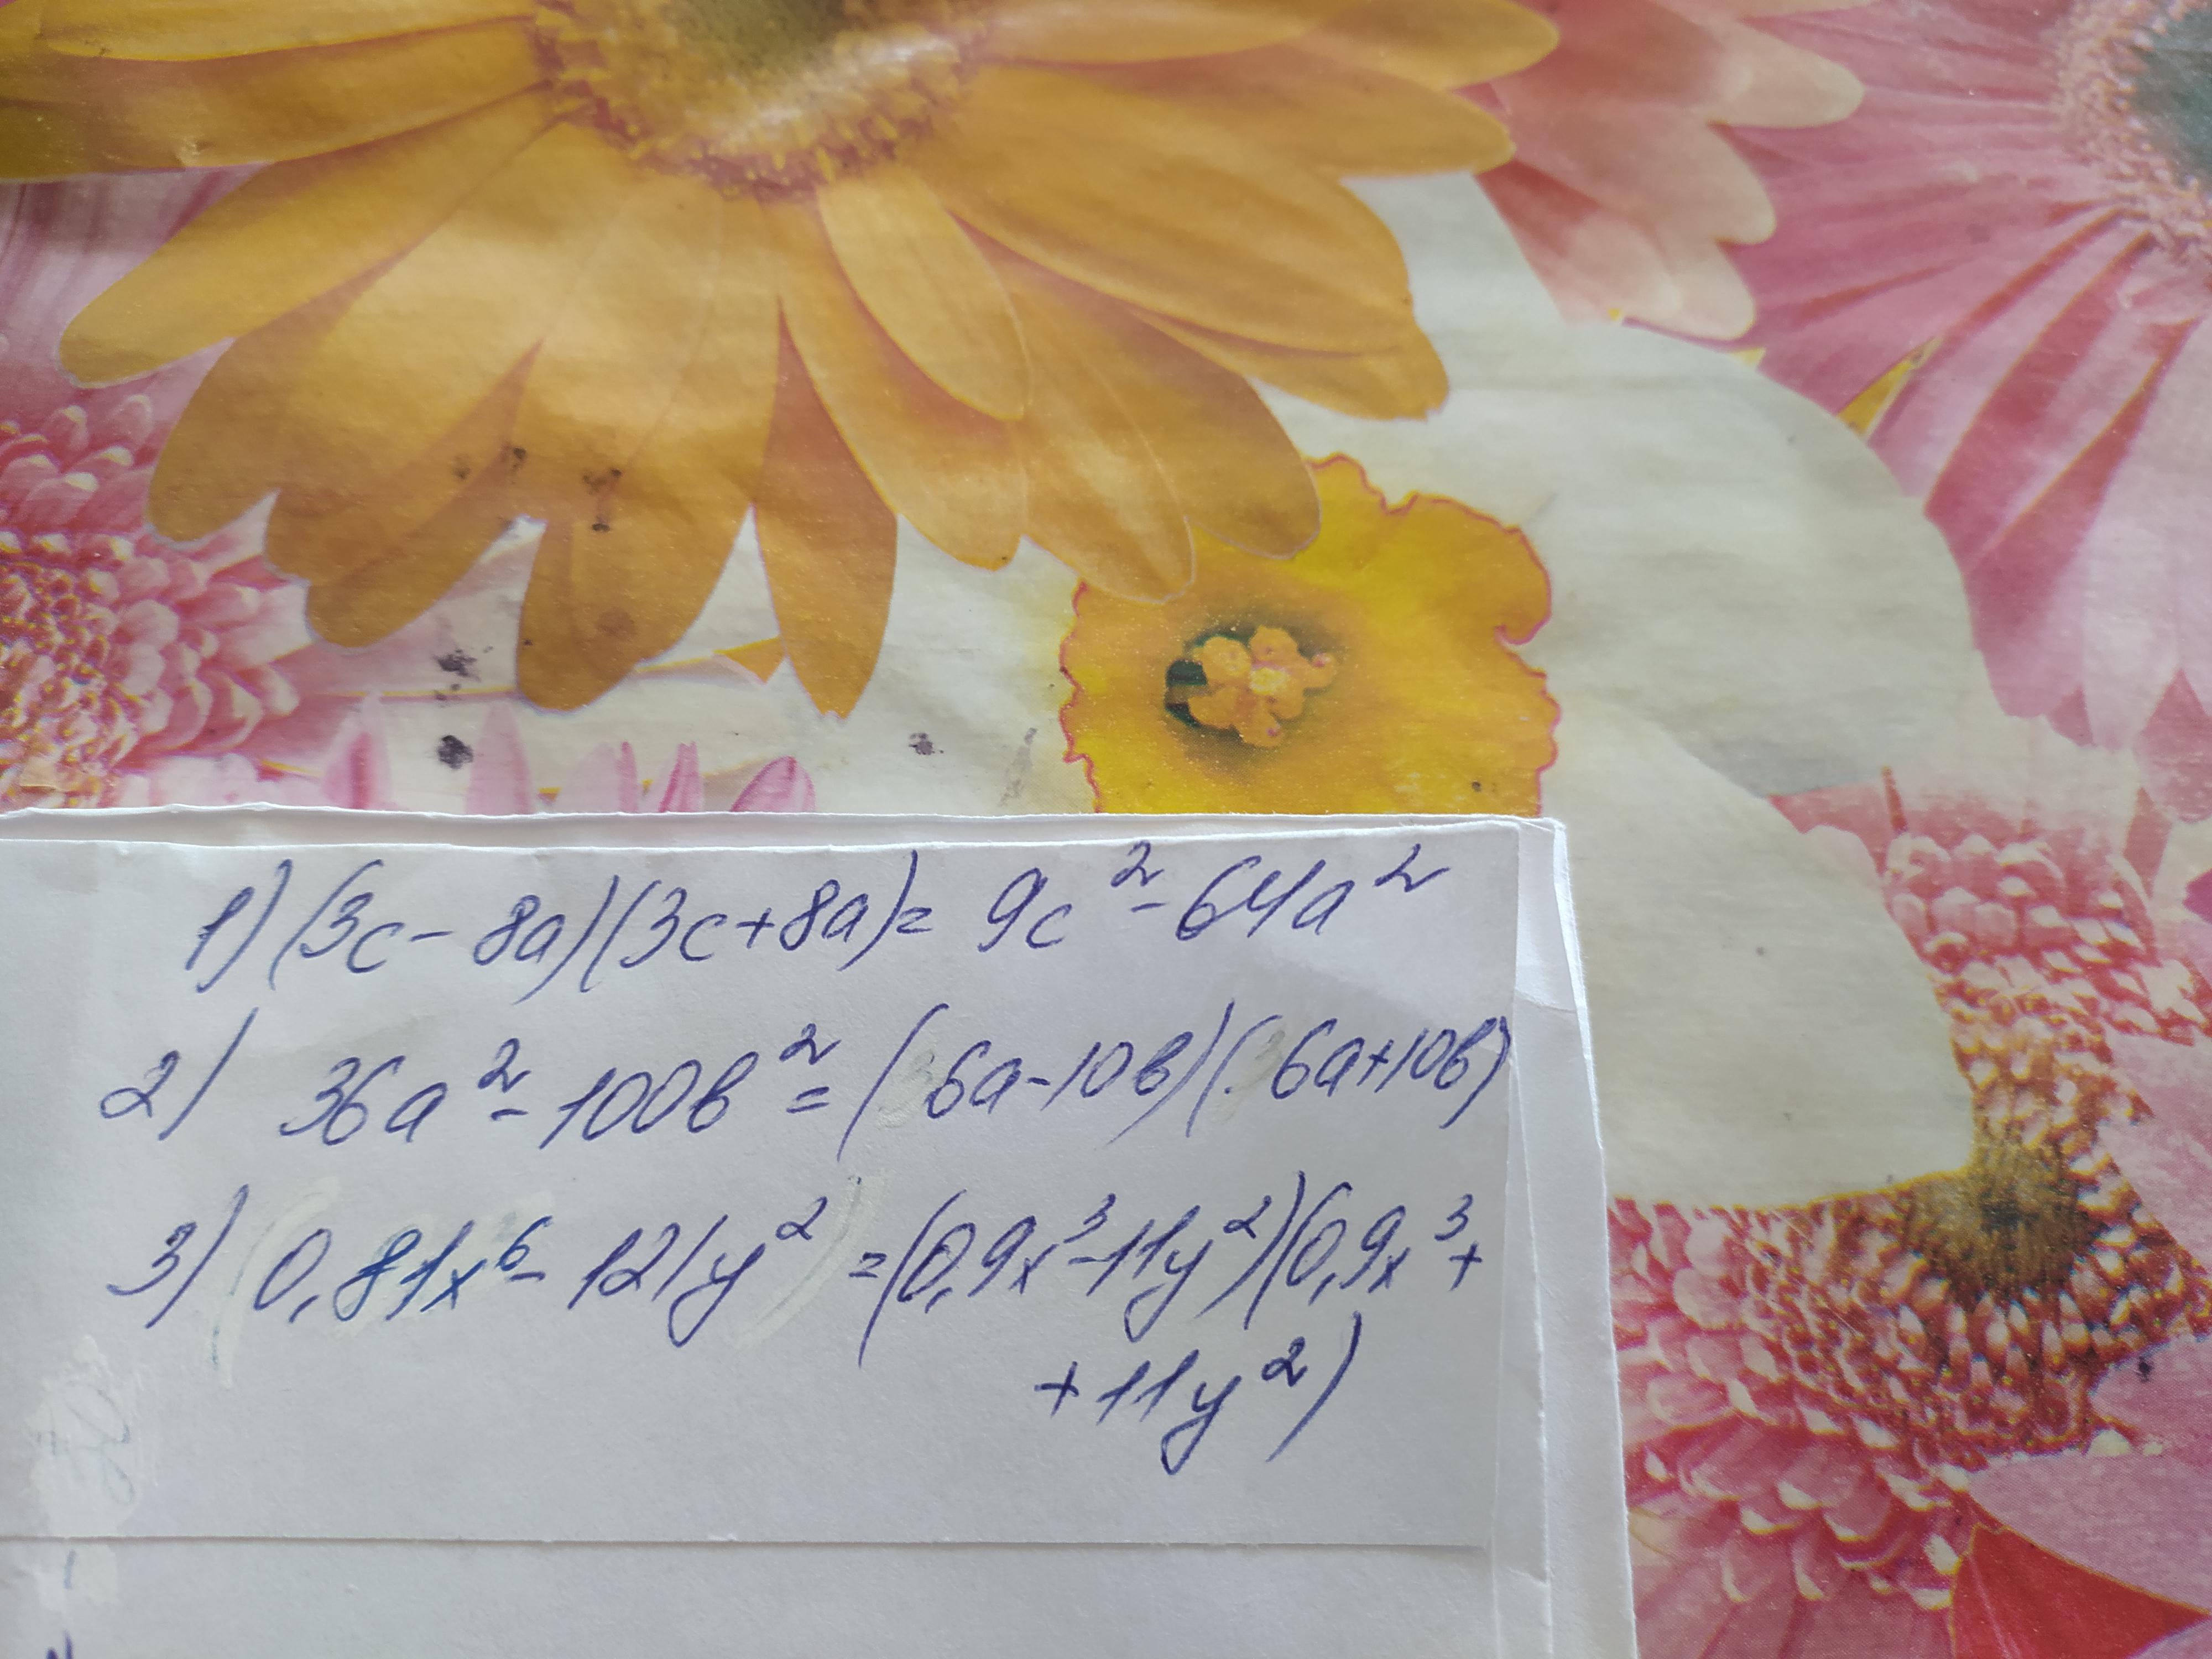 1) (3c - 8a)(3c + 8a) = 9c² - 64a²
2) 36a² - 100в² = (6a - 10в)(6a + 10в)
3) 0,81x⁶ - 121y² = (0,9x³ - 11y²)(0,9x³ +
+ 11y²)